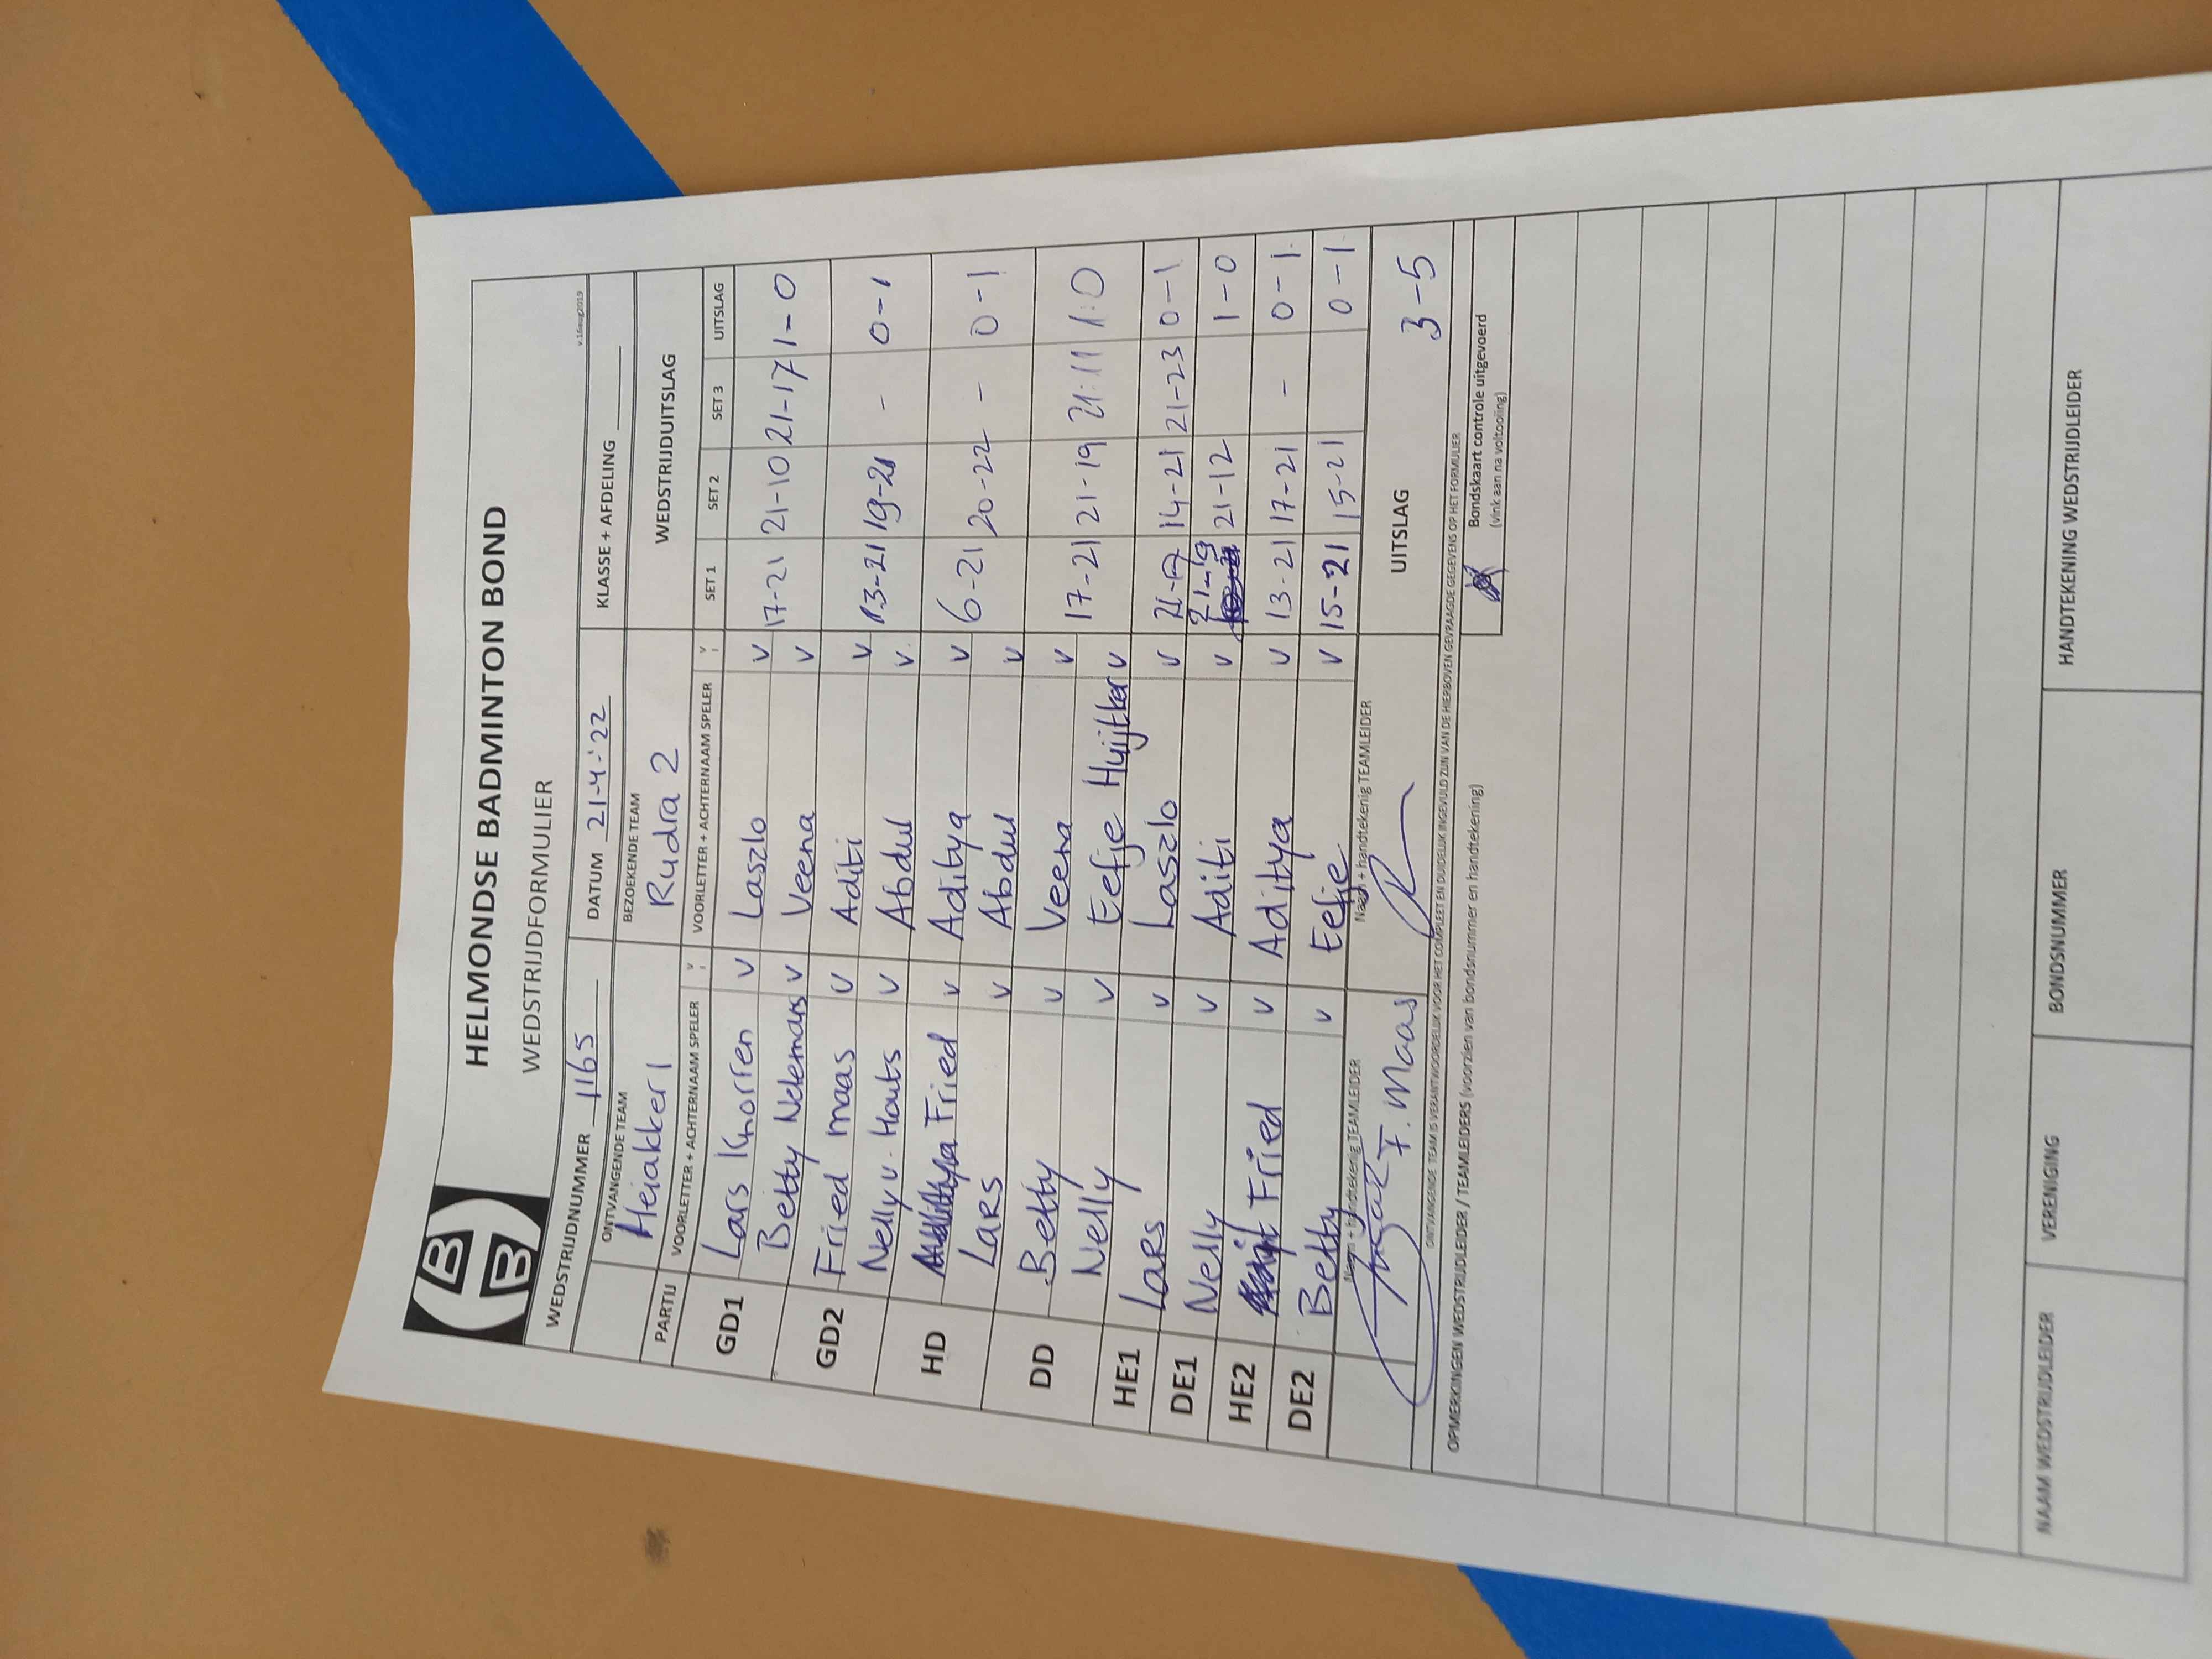 HBB
HELMONDSE BADMINTON BOND
WEDSTRIJDFORMULIER
v.16aug2019
WEDSTRIJDNUMMER 1165 DATUM 21-4-'22 KLASSE + AFDELING
ONTVANGENDE TEAM BEZOEKENDE TEAM
Heiakker 1 Rudra 2 WEDSTRIJDUITSLAG
PARTIJ VOORLETTER + ACHTERNAAM SPELER V VOORLETTER + ACHTERNAAM SPELER V SET 1 SET 2 SET 3 UITSLAG
GD1 Lars Knorren V Laszlo V 17-21 21-10 21-17 1-0
Betty Nelemans V Veena V
GD2 Fried maas V Aditi V 13-21 19-21 - 0-1
Nelly v. Houts V Abdul V.
HD Fried V Aditya V 6-21 20-22 - 0-1
LARS V Abdul V
DD Betty V Veena V 17-21 21-19 21:11 1:0
Nelly V Eefje Huijtker V
HE1 LARS V Laszlo V 14-21 21-23 0-1
DE1 Nelly V Aditi V 21-12 1-0
HE2 Fried V Aditya V 13-21 17-21 - 0-1
DE2 Betty V Eefje V 15-21 15-21 0-1
Naam + handtekenig TEAMLEIDER Naam + handtekenig TEAMLEIDER UITSLAG 3-5
F. Maas
ONTVANGENDE TEAM IS VERANTWOORDELIJK VOOR HET COMPLEET EN DUIDELIJK INGEVULD ZIJN VAN DE HIERBOVEN GEVRAAGDE GEGEVENS OP HET FORMULIER
OPMERKINGEN WEDSTRIJDLEIDER / TEAMLEIDERS (voorzien van bondsnummer en handtekening) Bondskaart controle uitgevoerd
(vink aan na voltooiing)
NAAM WEDSTRIJDLEIDER VERENIGING BONDSNUMMER HANDTEKENING WEDSTRIJDLEIDER